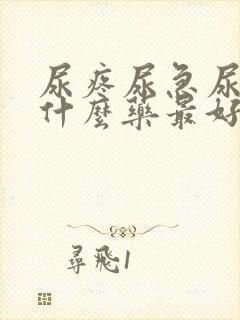 尿疼尿急尿
什麼藥最好
尋飛1